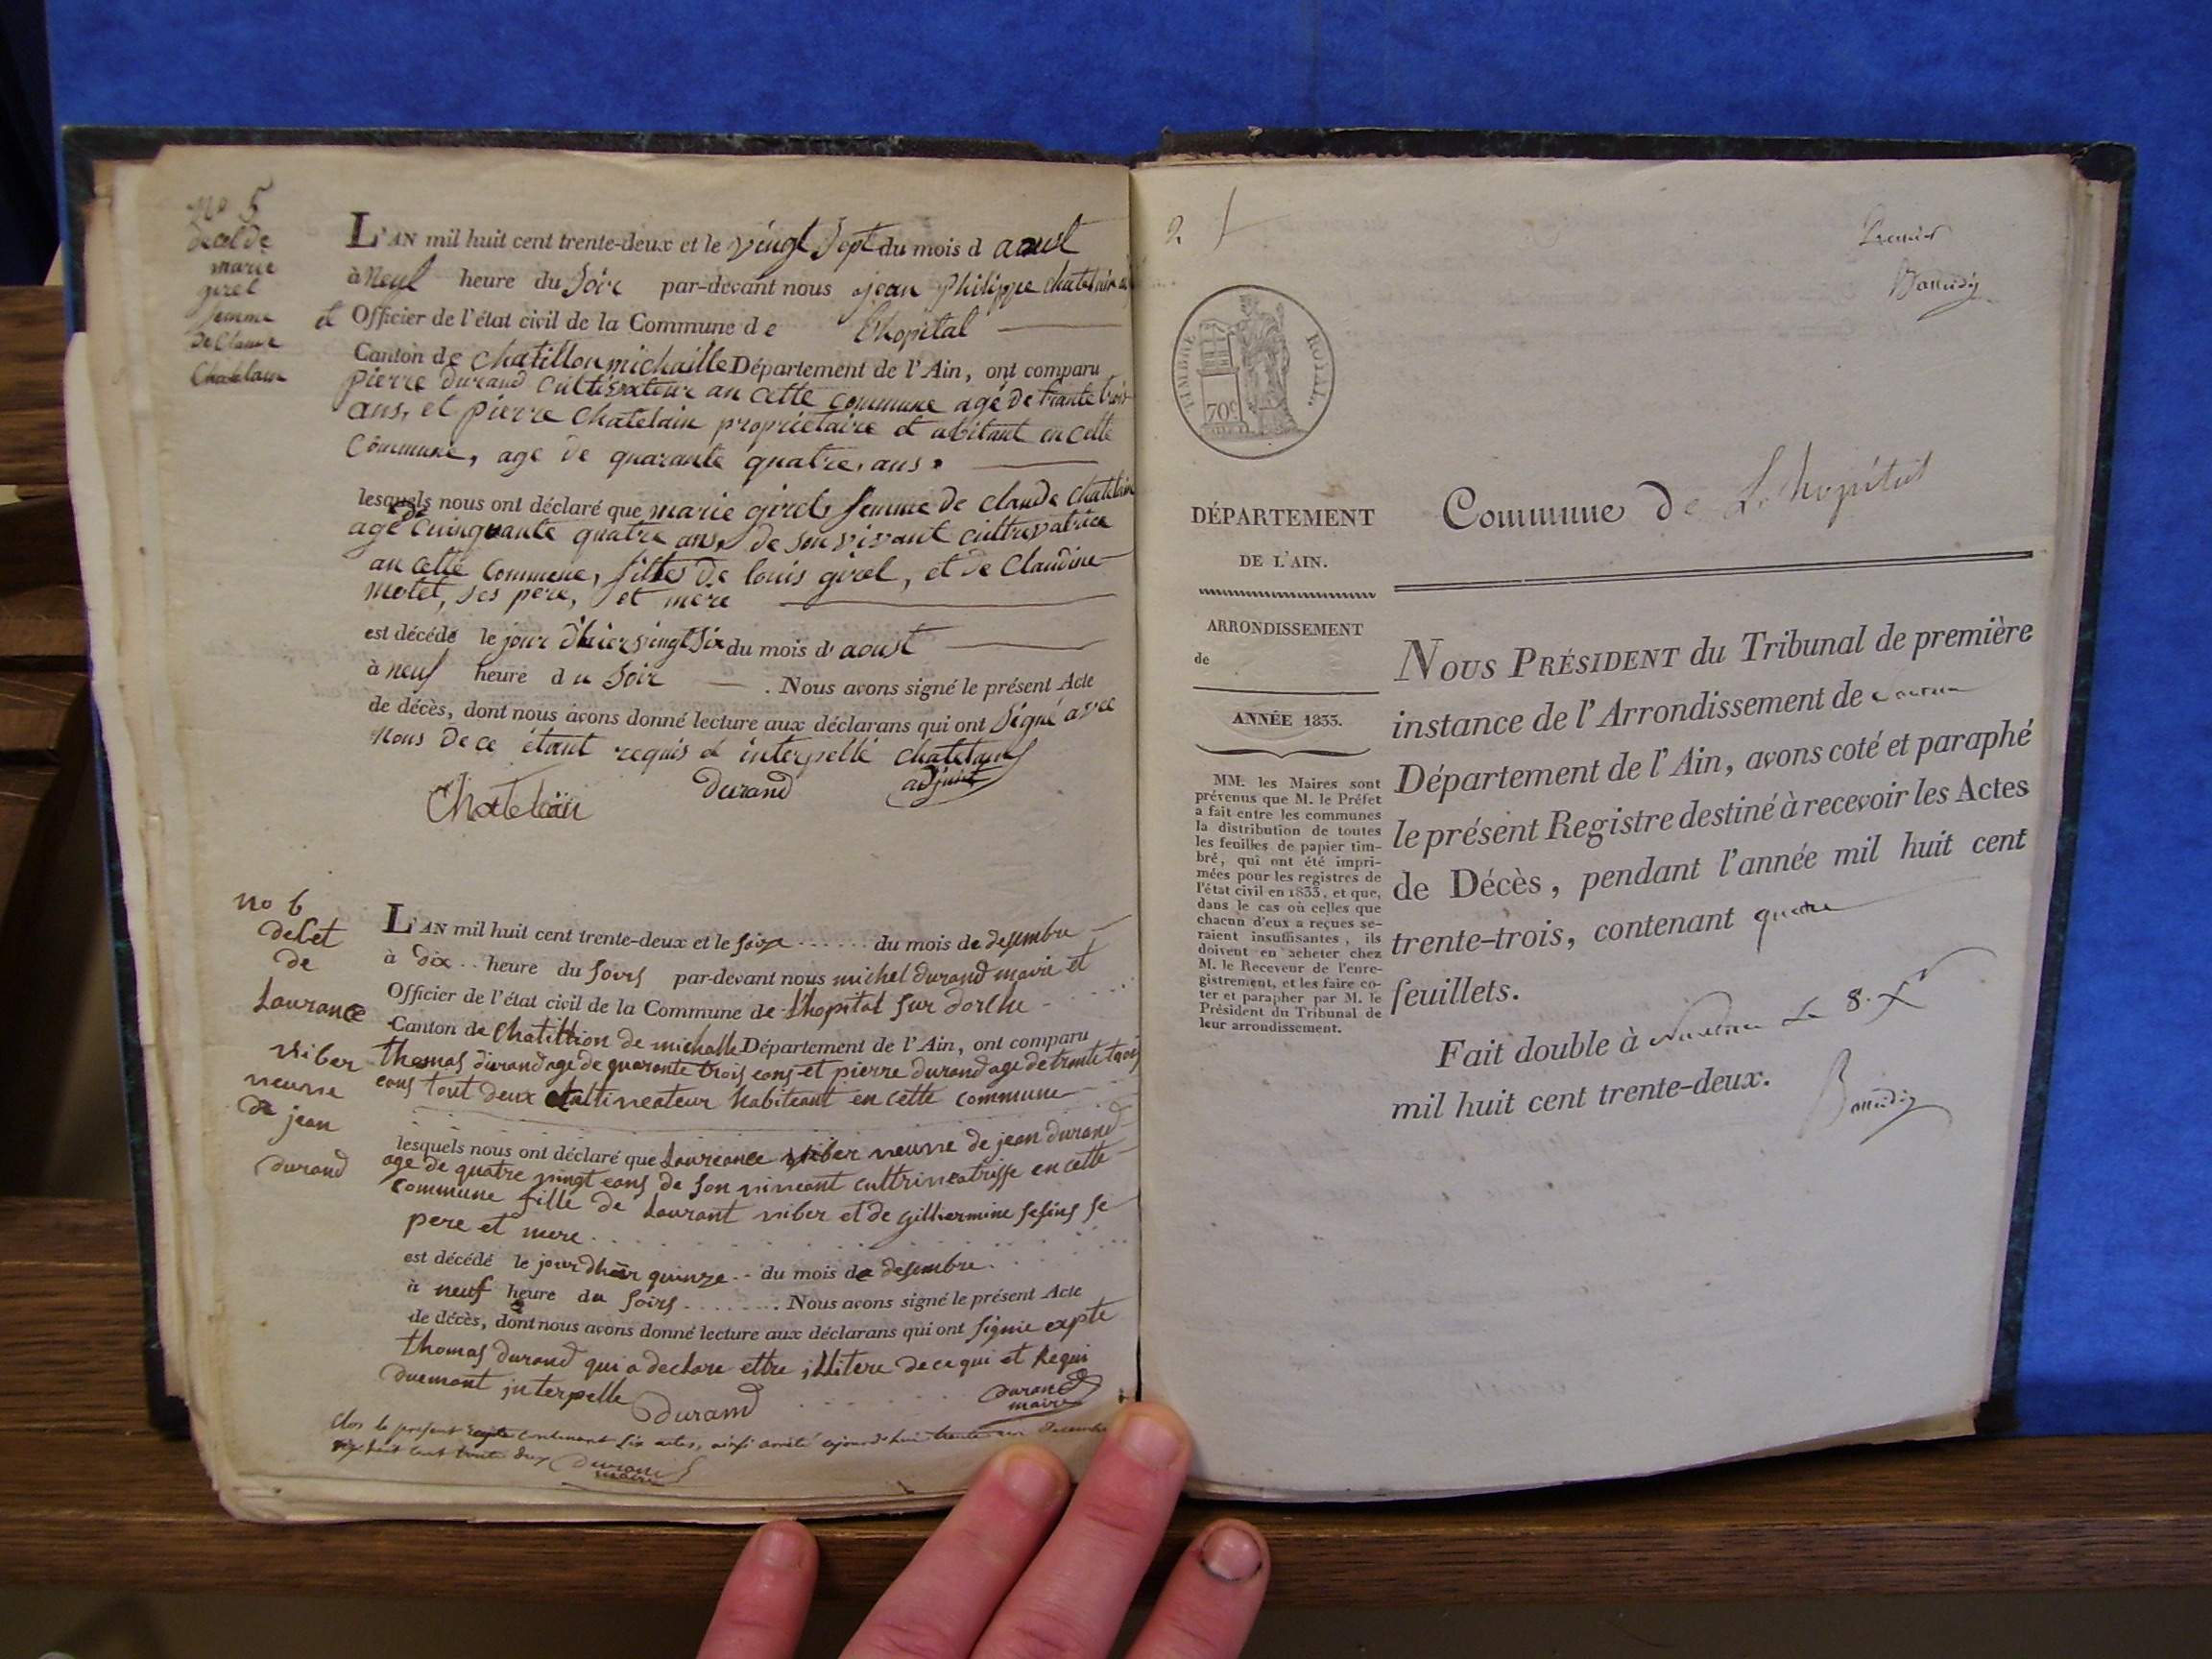 no 5
deces de
marie
girel
femme
De Claude
Chatelain
L'AN mil huit cent trente-deux et le vingt sept du mois d aoust
à neuf heure du soir par-devant nous jean philippe chatelain
et Officier de l'état civil de la Commune de l'hopital
Canton de chatillon michaille Département de l'Ain, ont comparu
pierre durand cultivateur an cette commune agé de trante trois
ans, et pierre chatelain propriétaire et abitant en cette
Commune, age de quarante quatre ans.
lesquels nous ont déclaré que marie girel femme de claude chatelain
age de cuinquante quatre ans, de son vivant cultrivatrice
an cette commune, filles de louis girel, et de Claudine
motet, ses pere, et mere
est décédé le jour d'hier vingt six du mois d' aoust
à neuf heure du soir . Nous avons signé le présent Acte
de décès, dont nous avons donné lecture aux déclarans qui ont signé avec
nous de ce étant requis et interpellé chatelain
Chatelain durand adjoint
no 6
decet
de
Laurance
viber
veuve
de jean
durand
L'AN mil huit cent trente-deux et le seize du mois de desembre
à dix heure du soirs par-devant nous michel durand maire et
Officier de l'état civil de la Commune de l'hopital sur dorche
Canton de Chatillion de michalle Département de l'Ain, ont comparu
thomas durand age de quarante trois eans et pierre durand age de trante trois
eans tout deux cultiveateur habiteant en cette commune
lesquels nous ont déclaré que Laureance viber veuve de jean durand
age de quatre vingt eans de son viveant cultriveatrisse en cette
commune fille de Laurant viber et de gilliermine se
pere et mere
est décédé le jour dhier quinze du mois de desembre
à neuf heure du soirs . Nous avons signé le présent Acte
de décès, dont nous avons donné lecture aux déclarans qui ont signie expte
thomas durand qui a declare ettre illitere de ce qui et Requi
duemant interpelle
Durand durand
maire
Clos le present contenant six actes, ainsi arreté ajourd'hui trente un Decembre
huit cent trente deux durand
maire
2.
Premier
TIMBRE ROYAL.
70c
DÉPARTEMENT
DE L'AIN.
ARRONDISSEMENT
de
ANNÉE 1833.
MM. les Maires sont
prévenus que M. le Préfet
a fait entre les communes
la distribution de toutes
les feuilles de papier tim-
bré, qui ont été impri-
mées pour les registres de
l'état civil en 1833, et que,
dans le cas où celles que
chacun d'eux a reçues se-
raient insuffisantes, ils
doivent en acheter chez
M. le Receveur de l'enre-
gistrement, et les faire co-
ter et parapher par M. le
Président du Tribunal de
leur arrondissement.
Commune de L'hopital
NOUS PRÉSIDENT du Tribunal de première
instance de l'Arrondissement de Nantua
Département de l'Ain, avons coté et paraphé
le présent Registre destiné à recevoir les Actes
de Décès, pendant l'année mil huit cent
trente-trois, contenant quatre
feuillets.
Fait double à Nantua le 8.
mil huit cent trente-deux.